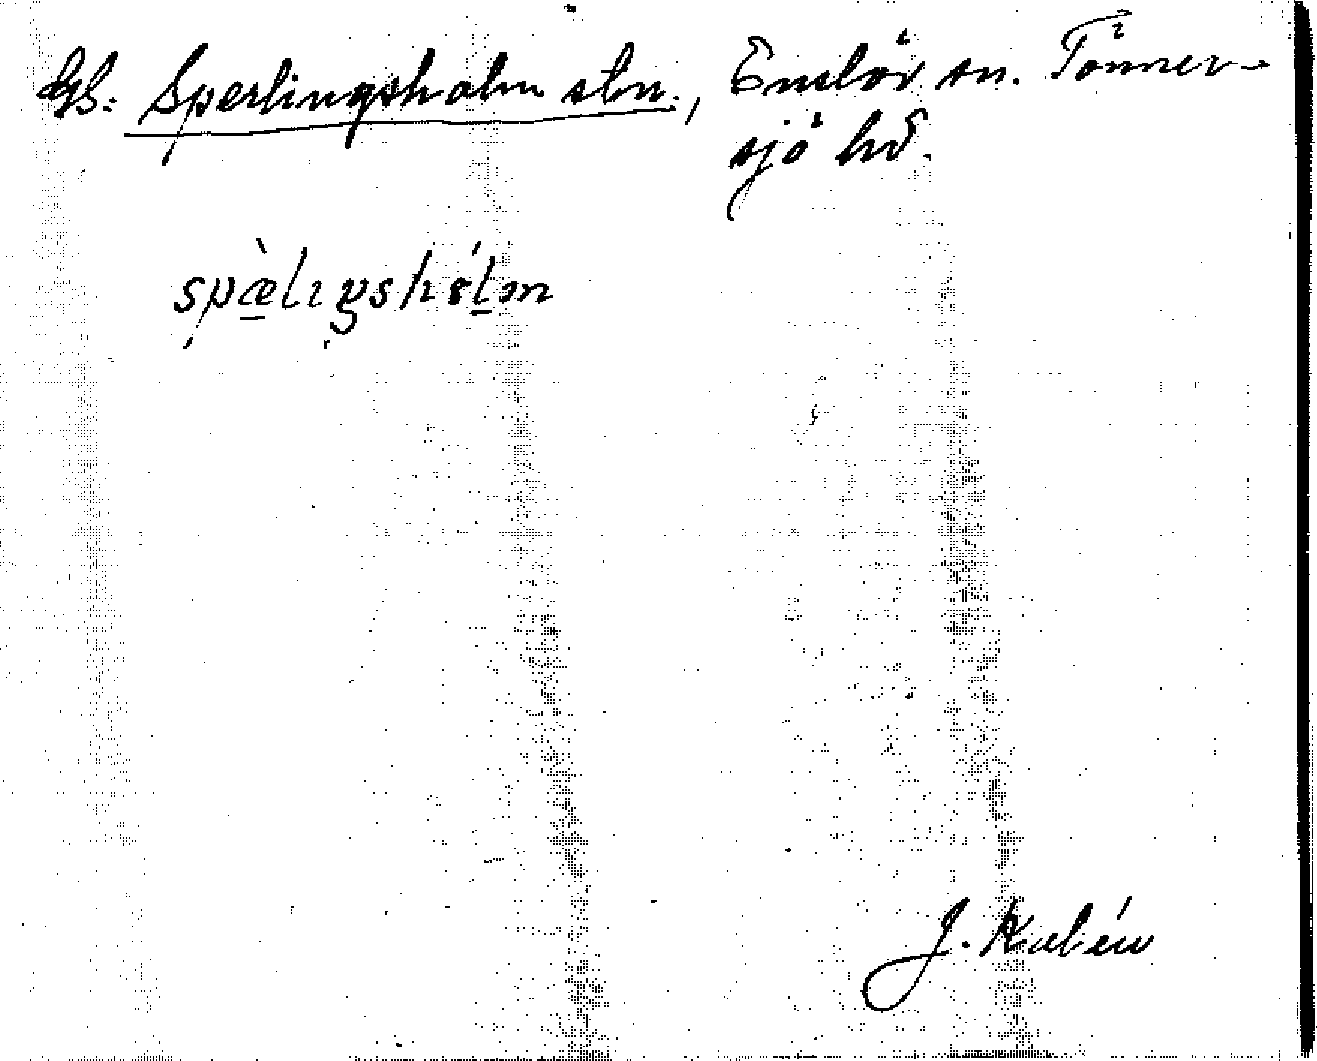 Gb: Sperlingsholm stn., Enslöv sn. Tönner-
sjö hd.
spæ̀lıŋshólm
J. Kalén